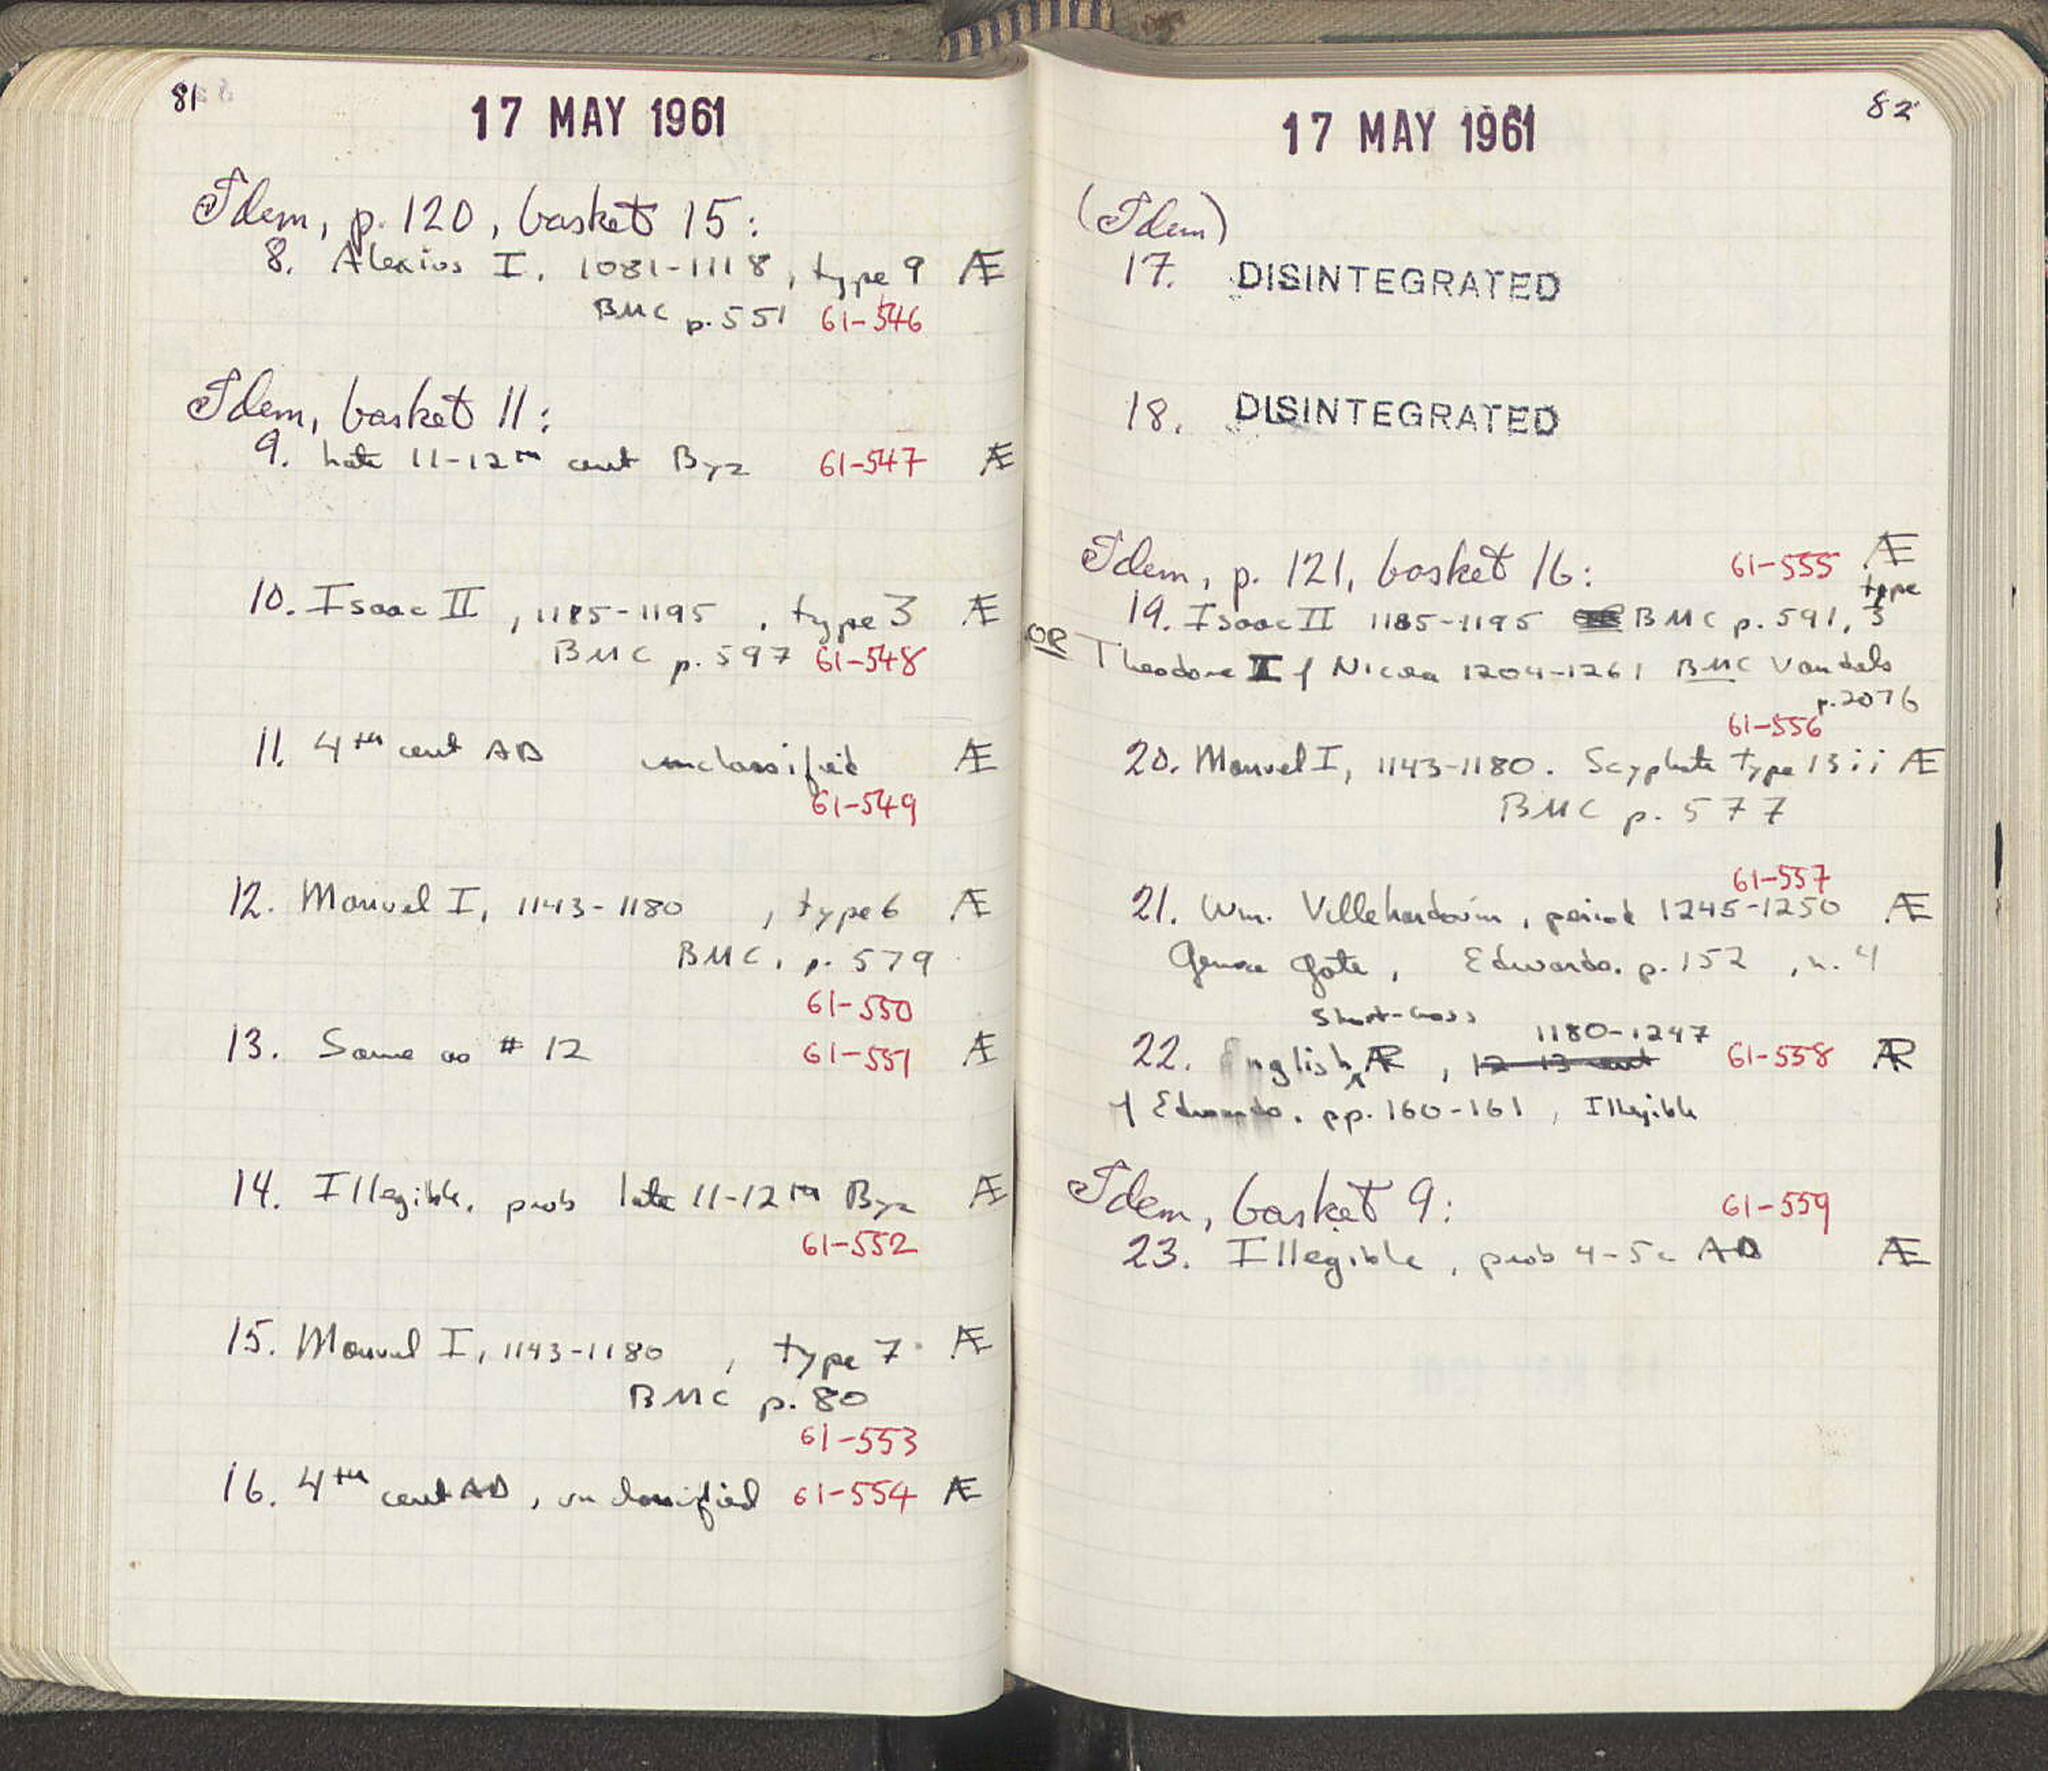 81
17 MAY 1961
Idem, p. 120, basket 15:
8. Alexius I, 1081-1118, type 9 Æ
BMC p. 551 61-546
Idem, basket 11:
9. Late 11-12th cent Byz 61-547 Æ
10. Isaac II, 1185-1195, type 3 Æ
BMC p. 597 61-548
11. 4th cent AD unclassified Æ
61-549
12. Manuel I, 1143-1180, type 6 Æ
BMC, p. 579
61-550
13. Same as # 12 61-551 Æ
14. Illegible, prob late 11-12th Byz Æ
61-552
15. Manuel I, 1143-1180, type 7 Æ
BMC p. 80
61-553
16. 4th cent AD, unclassified 61-554 Æ
82
17 MAY 1961
(Idem)
17. DISINTEGRATED
18. DISINTEGRATED
Idem, p. 121, basket 16: 61-555 Æ
type
19. Isaac II 1185-1195 BMC p. 591, 3
OR Theodore II of Nicaea 1204-1261 BMC Vandals
p. 2076
61-556
20. Manuel I, 1143-1180. Scyphate type 13 ii Æ
BMC p. 577
61-557
21. Wm. Villehardouin, period 1245-1250 Æ
Genoa Gate, Edwards. p. 152, n. 4
Short-cross
1180-1247
22. English AR, 12-13 cent 61-558 AR
cf Edwards. pp. 160-161, Illegible
Idem, basket 9: 61-559
23. Illegible, prob 4-5c AD Æ